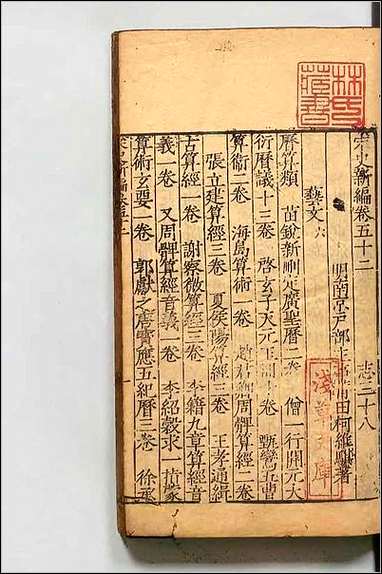 林氏藏書
宋史新編卷五十二 志三十八
明南京戶部主 莆田柯維騏著
淺草文庫
藝文六
曆算類 苗銳新刪定廣聖曆二卷 僧一行開元大
衍曆議十三卷 啓玄子天元玉冊十卷 甄鸞五曹
算術二卷 海島算術一卷 趙君卿周髀算經二卷
張立建算經三卷 夏侯陽算經三卷 王孝通緝
古算經一卷 謝察微算經三卷 李籍九章算經音
義一卷 又周髀算經音義一卷 李紹穀求一指蒙
算術玄要一卷 郭獻之唐寶應五紀曆三卷 徐承